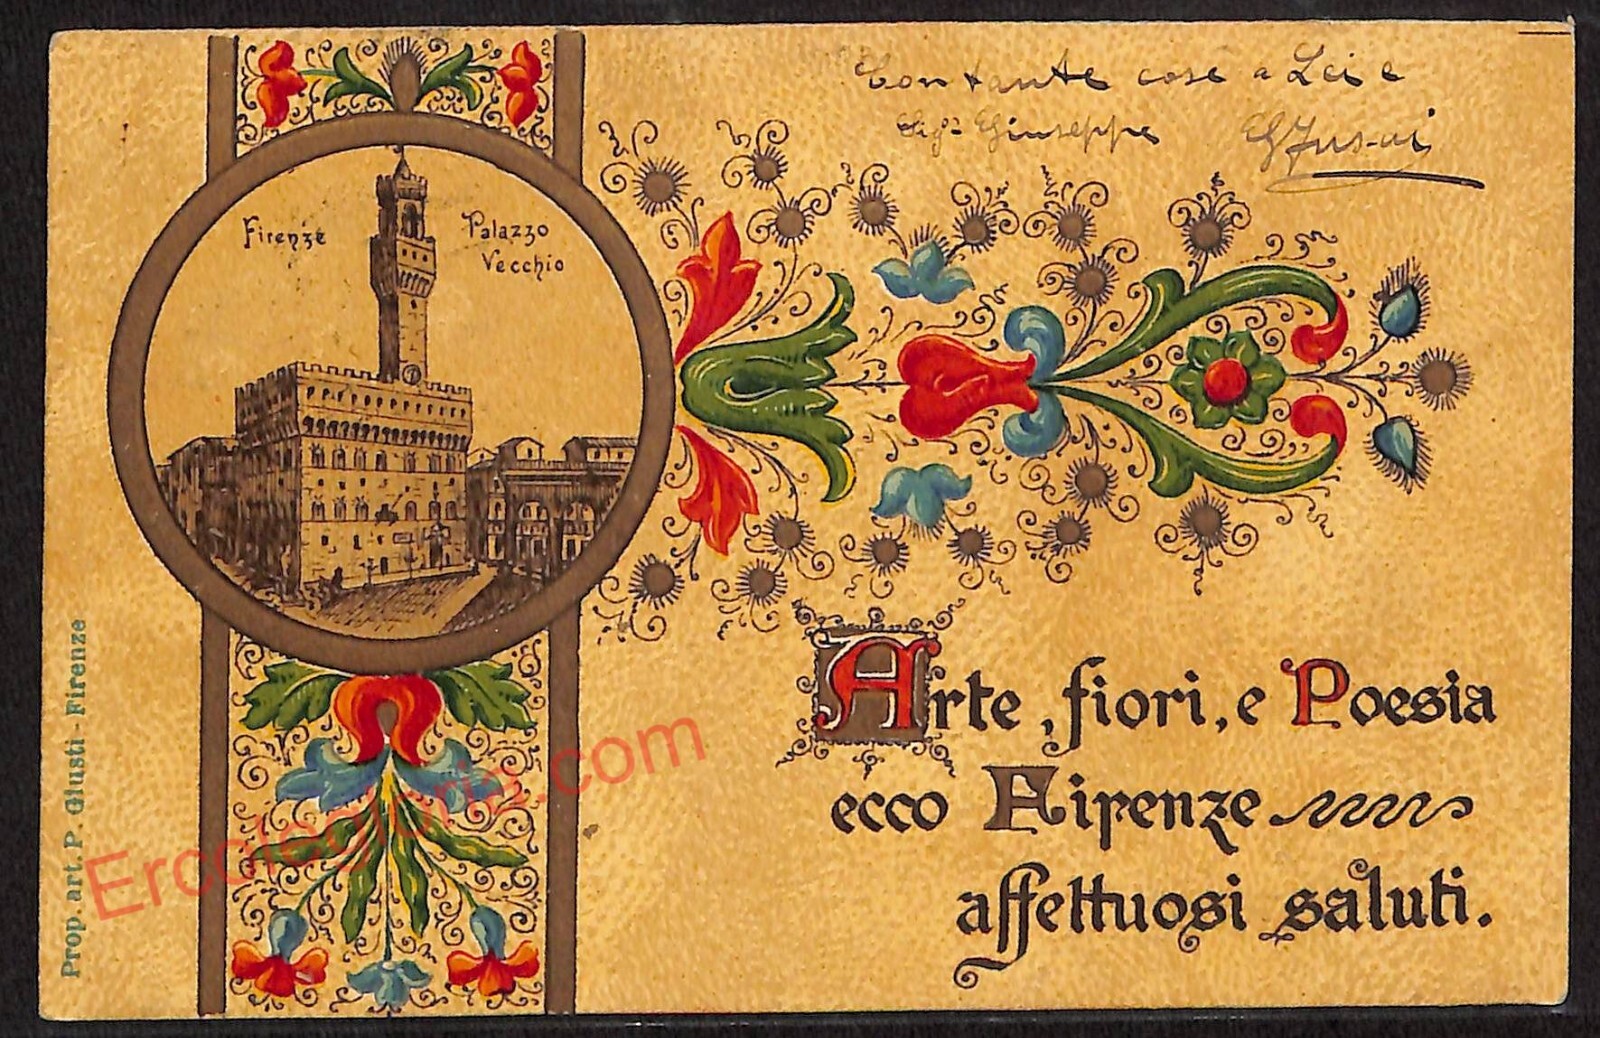 Con tante cose a Lei e
Sigr Giuseppe
Firenze
Palazzo
Vecchio
Arte, fiori, e Poesia
ecco Firenze
affettuosi saluti.
Prop. art. P. Giusti - Firenze
Ercolegloria.com